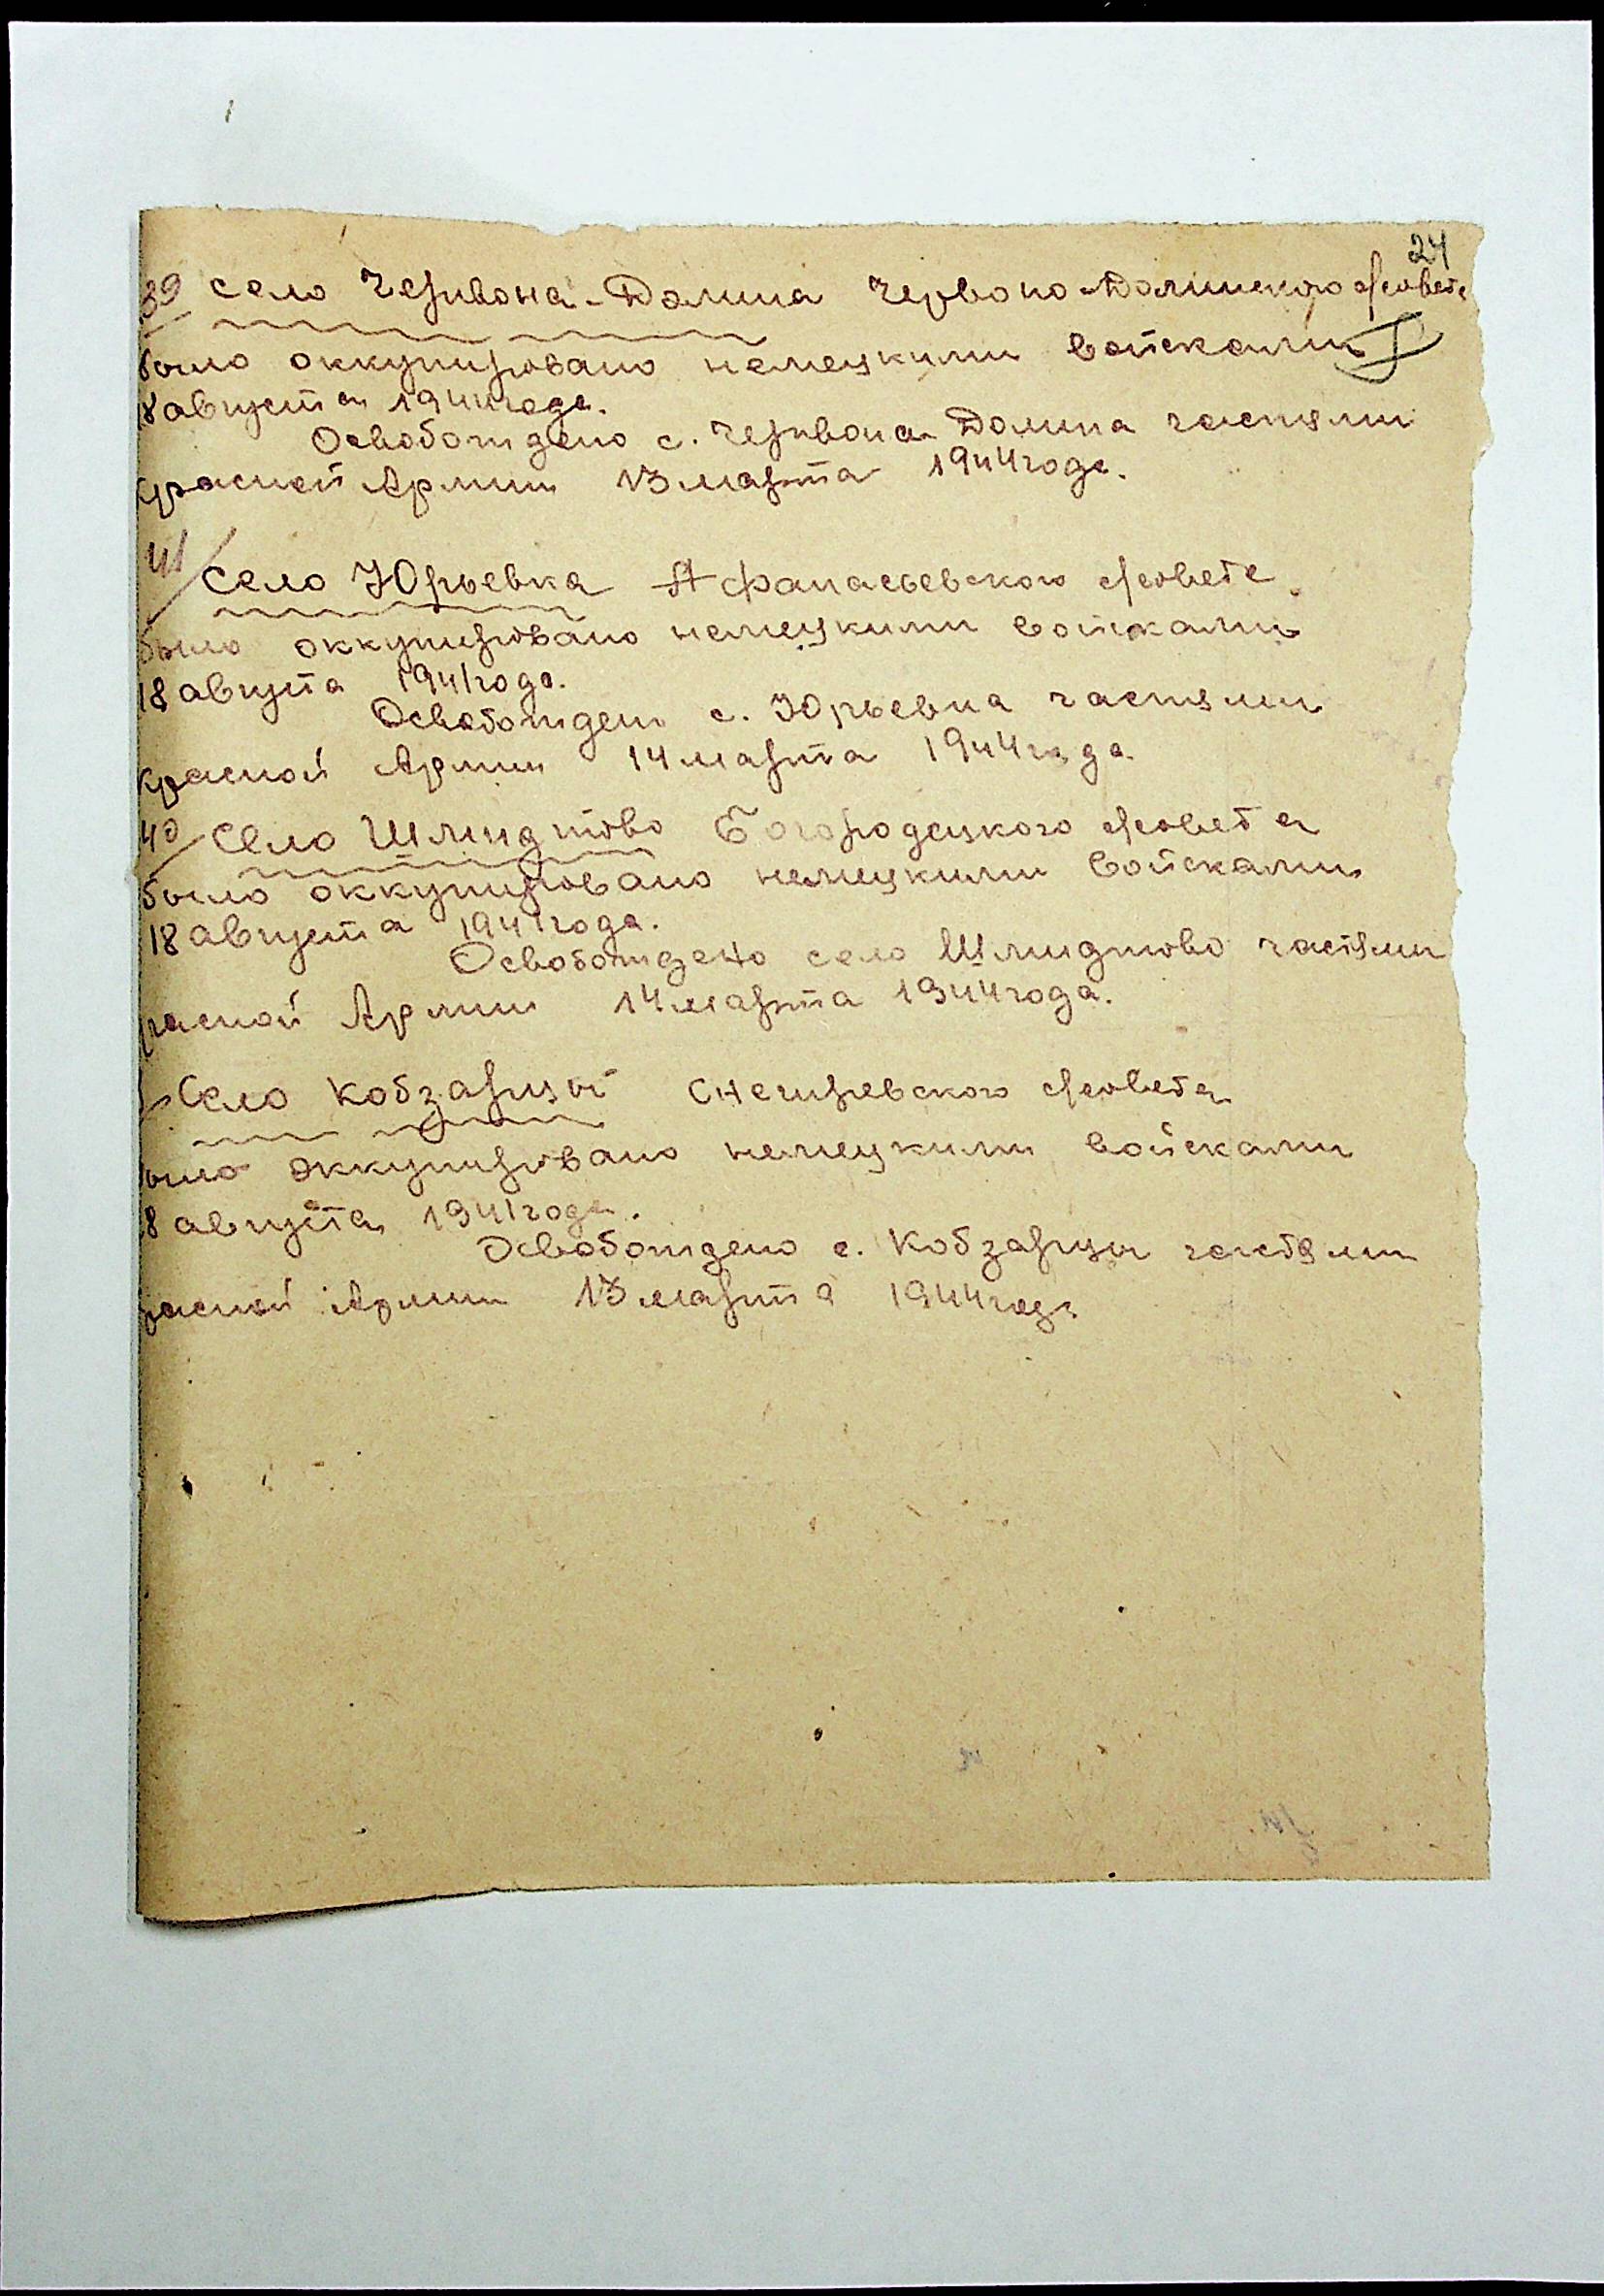 24
39 село Червона-Долина Червоно-Долинского с/совета
было оккупировано немецкими войсками
18 августа 1941 года.
Освобождено с. Червона Долина частями
красной Армии 13 марта 1944 года.
41/ Село Юрьевка Афанасьевского с/совета
было оккупировано немецкими войсками
18 августа 1941 года.
Освобожден с. Юрьевка частями
красной Армии 14 марта 1944 года
40 Село Шмидтово Богородецкого с/совета
было оккупировано немецкими войсками
18 августа 1941 года.
Освобождено село Шмидтово частями
расной Армии 14 марта 1944 года.
Село Кобзарцы Снегиревского с/совета
ыло оккупировано немецкими войсками
8 августа 1941 года.
Освобождено с. Кобзарцы частями
расной Армии 13 марта 1944 года